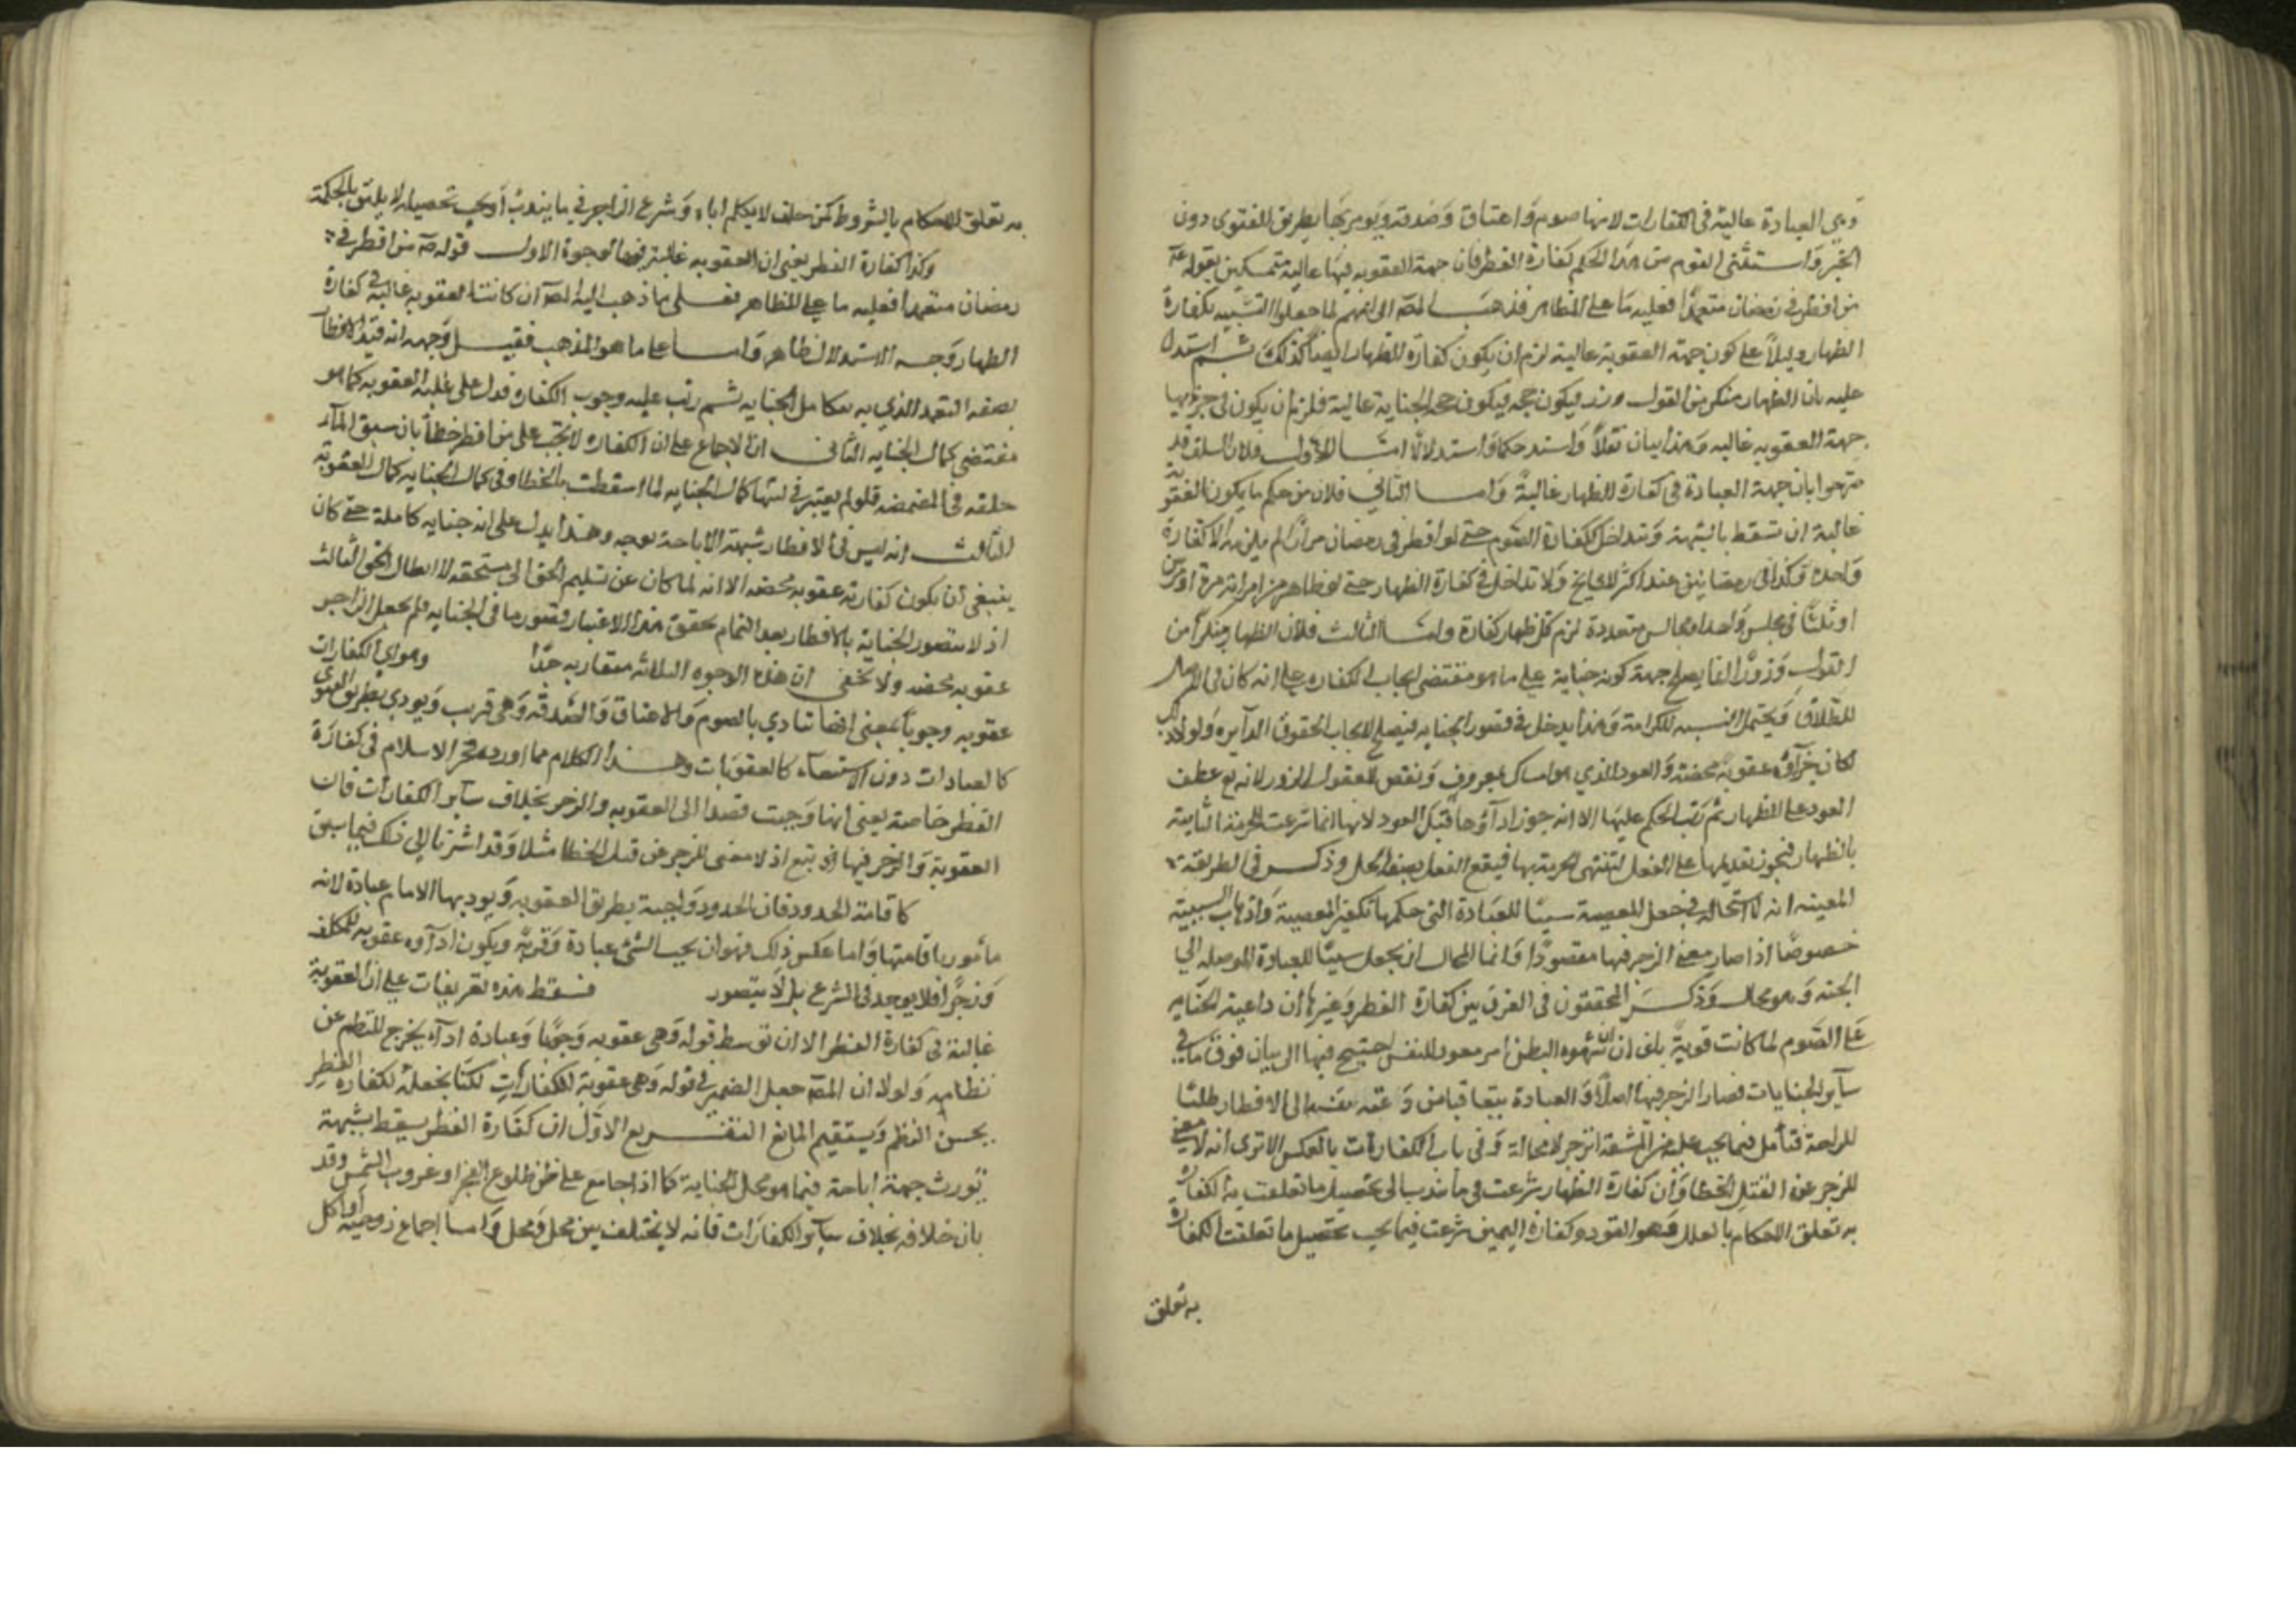 وهي العبادة غالبة في الكفارات لانها صوم واعتاق وصدقة ويومر بها بطريق الفتوى دون
الجبر واستثنى القوم من هذا الحكم كفارة الفطر فان جهة العقوبه فيها غالبة متمسكين بقوله عم
من افطر في رمضان متعمدا فعليه ما على المظاهر فذهب المص الى انهم لما جعلوا التشبيه بكفارة
الظهار دليلاً على كون جهة العقوبة غالبة لزم ان يكون كفارة الظهار ايضا كذلك ثم استدل
عليه بان الظهار منكر من القول وزور فيكون جهة الجناية غالبة فلزم ان يكون في جزائها
جهة العقوبه غالبه وهذا بيان نقلاً واستدلالا اما الاول فلان السلف قد
صرحوا بان جهة العبادة في كفارة الظهار غالبة واما الثاني فلان من حكم ما يكون العقوبة
غالبة ان تسقط بالشبهة وتتداخل ككفارة الصوم حتى لو افطر في رمضان مرارا لم يلزمه الا كفارة
واحدة وكذا في رمضانين عند اكثر المشايخ ولا تداخل في كفارة الظهار حتى لو ظاهر من امراته مرة او مرتين
او ثلثا في مجلس واحد او مجالس متعددة لزم لكل ظهار كفارة واما الثالث فلان الظهار منكراً من
القول وزوراً انما يصلح جهة كونه جناية على ما هو مقتضى ايجاب الكفاره على انه كان في الاصل
للطلاق ويحتمل التشبيه للكرامة وهذا يدخل في قصور الجنايه فيصلح لايجاب الحقوق الدايره ولولا ذلك
لكان جزاؤه عقوبة محضة والعود الذي هو امساك بمعروف ونقض للقول الزور لانه تع عطف
العود على الظهار ثم رتب الحكم عليها الا انه جوز اداؤها قبل العود لانها انما شرعت للحرمة الثابتة
بالظهار فيجوز تقديمها على الفعل لتنتهي الحرمة بها فيقع الفعل بصفة الحل وذكر في الطريقة
المعينيه انه لا استحالة في جعل المعصية سببا للعبادة التي حكمها تكفير المعصية واذهاب السيئة
خصوصاً اذا صار معنى الزجر فيها مقصوداً وانما المحال ان يجعل سببا للعبادة الموصله الى
الجنه وهو محال وذكر المحققون في الفرق بين كفارة الفطر وغيرها ان داعية الجنايه
على الصوم لما كانت قوية ان شهوة البطن امر معود للنفس احتيج فيها الى بيان فوق ما في
ساير الجنايات فصار الزجر فيها اصلاً والعبادة تبعا فان من دعته نفسه الى الافطار طلبا
للراحة فتأمل فيما يجب عليه من المشقة انزجر لا محالة وفي باب الكفارات بالعكس الا ترى انه لا معنى
للزجر عن القتل الخطا وان كفارة الظهار شرعت في ما يندب الى تحصيل ما تعلقت به الكفارة
به تعلق الاحكام بالعلل وهو العود وكفارة اليمين شرعت فيما يجب تحصيل ما تعلقت الكفارة
به تعلق
به تعلق الاحكام بالشروط كمن حلف لا يكلم اباه وشرع الزاجر في ما يندب او يجب تحصيله لا يليق بالحكمة
وكذا كفارة الفطر يعنى ان العقوبه غالبة فيها لوجوه الاول قوله عم من افطر في
رمضان متعمدا فعليه ما على المظاهر فعلى ما ذهب اليه المص ان كانت العقوبه غالبة في كفارة
الظهار وجه الاستدلال ظاهر واما على ما هو المذهب فقيل وجهه انه قيد الافطار
بصفة التعمد الذي به تتكامل الجنايه ثم رتب عليه وجوب الكفاره فدل على غلبة العقوبه كما هو
مقتضى كمال الجنايه الثاني ان الاجماع على ان الكفاره لا تجب على من افطر خطأ بان سبق الماء
حلقه في المضمضه فلو لم يعتبر في سببها كمال الجنايه لما اسقطت بالخطا وفي كمال الجنايه كمال العقوبة
الثالث انه ليس في الافطار شبهة الاباحة بوجه وهذا يدل على انه جنايه كاملة حتى كان
ينبغي ان يكون كفارته عقوبه محضه الا انه لما كان عن تسليم الحق الى مستحقه لا ابطال الحق الثابت
اذ لا يتصور الجناية بالافطار بعد التمام تحقق بهذا الاعتبار قصور ما في الجنايه فلم يجعل الزاجر
عقوبه محضه ولا يخفى ان هذه الوجوه الثلاثه متقاربه جدًّا وهو اي الكفارات
عقوبه وجوباً بمعنى انها تتادي بالصوم والاعتاق والصدقة وهي قرب ويودي بطريق الفتوى
كالعبادات دون الاستيفاء كالعقوبات وهذا الكلام مما اورده فخر الاسلام في كفارة
الفطر خاصة يعنى انها وجبت قصدا الى العقوبه والزجر بخلاف ساير الكفارات فان
العقوبة والزجر فيها تبع اذ لا معنى للزجر عن قتل الخطا مثلا وقد اشرنا الى ذلك فيما سبق
كاقامة الحدود فان الحدود واجبة بطريق العقوبه ويوديها الامام عبادة لانه
مأمور باقامتها واما عكس ذلك فهو ان يجب الشئ عبادة وقربة ويكون اداؤه عقوبه للمكلف
وزجرا فلا يوجد في الشرع بل لا يتصور فسقط هذه تفريعات على ان العقوبة
غالبة في كفارة الفطر الا ان توسط قوله وهي عقوبه وجوبا وعبادة اداء يخرج النظم عن
نظامه ولولا ان المص جعل الضمير في قوله وهي عقوبة للكفارات لكنا نجعله لكفارة الفطر
يحسن النظم ويستقيم المعنى التفريع الاول ان كفارة الفطر يسقط بشبهة
تورث جهة اباحة فيما هو محل الجناية كما اذا جامع على ظن طلوع الفجر او غروب الشمس وقد
بان خلافه بخلاف ساير الكفارات فانه لا يختلف بين محل ومحل واما اجماع زوجته او اكل